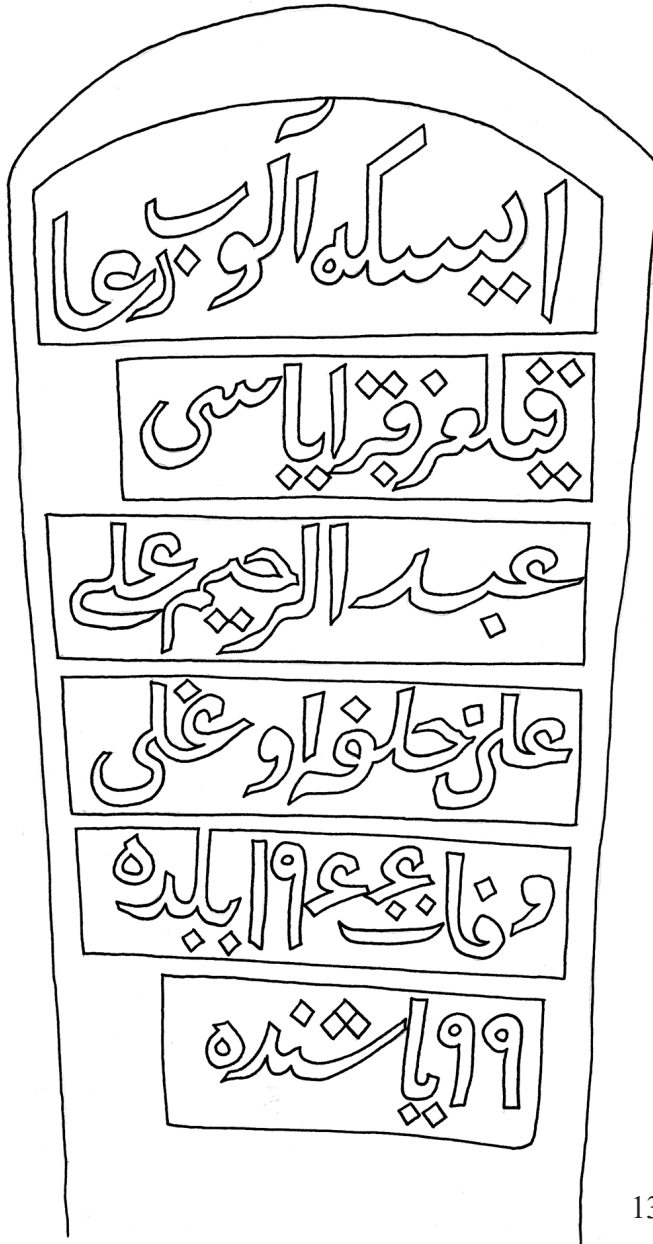 ایسكه آلوب دعا
قیلغز قبر ایاسی
عبد الرحیم علی
علی خلفه اوغلی
وفات ١٩٤٤ ییلده
٩٩ یاشنده
13